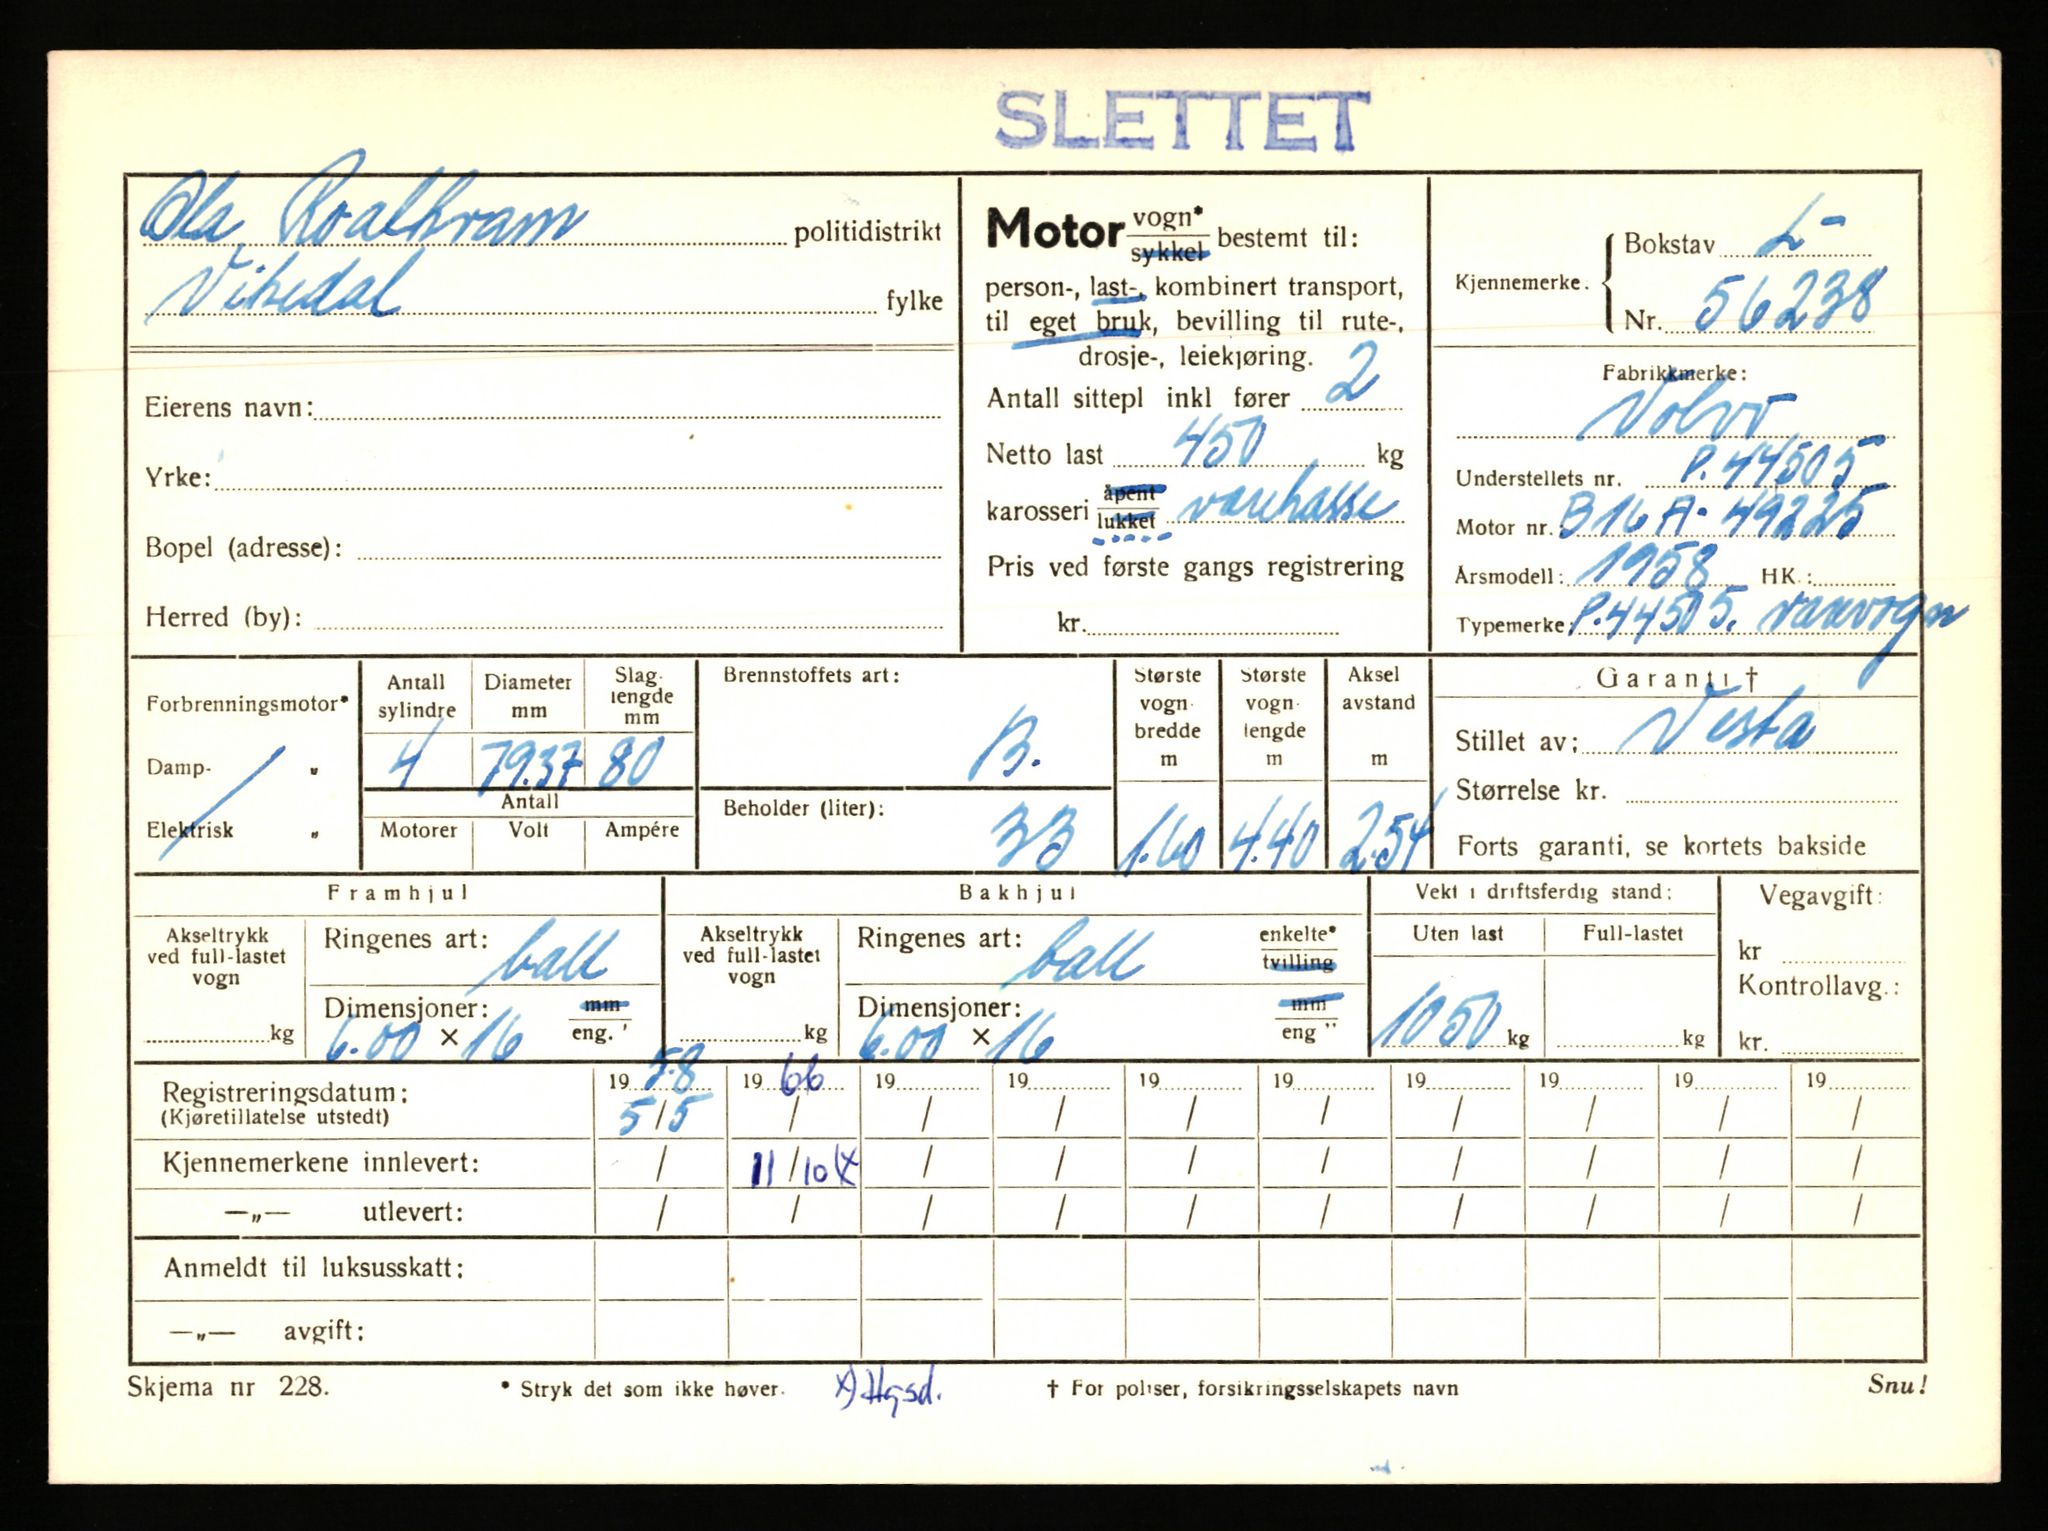 SLETTET
Ola Roalkvam politidistrikt
Vikedal fylke
Eierens navn:
Yrke:
Bopel (adresse):
Herred (by):
Motor vogn* sykkel bestemt til:
person-, last-, kombinert transport,
til eget bruk, bevilling til rute-,
drosje-, leiekjøring.
Antall sittepl inkl fører 2
Netto last 450 kg
karosseri åpent lukket varekasse
Pris ved første gangs registrering
kr.
Kjennemerke. Bokstav L-
Nr. 56238
Fabrikkmerke:
Volvo
Understellets nr. P.44505
Motor nr. B16A-49225
Årsmodell: 1958 HK.:
Typemerke: P.44505. varevogn
Forbrenningsmotor*
Damp- „
Elektrisk „
Antall sylindre 4
Diameter mm 79.37
Slag- lengde mm 80
Antall
Motorer Volt Ampére
Brennstoffets art: B.
Beholder (liter): 33
Største vogn- bredde m 1.60
Største vogn- lengde m 4.40
Aksel avstand m 2.54
Garanti †
Stillet av: Vesta
Størrelse kr.
Forts garanti, se kortets bakside
Framhjul
Akseltrykk ved full-lastet vogn kg
Ringenes art: ball
Dimensjoner: mm
6.00 × 16 eng."
Bakhjul
Akseltrykk ved full-lastet vogn kg
Ringenes art: ball enkelte* tvilling
Dimensjoner: mm
6.00 × 16 eng "
Vekt i driftsferdig stand:
Uten last Full-lastet
1050 kg kg
Vegavgift:
kr
Kontrollavg.:
kr.
Registreringsdatum: 19 58 19 66 19 19 19 19 19 19 19 19
(Kjøretillatelse utstedt) 5/5 / / / / / / / / /
Kjennemerkene innlevert: / 11/10 x / / / / / / / /
—„— utlevert: / / / / / / / / / /
Anmeldt til luksusskatt:
—„— avgift:
Skjema nr 228. * Stryk det som ikke høver. x) Hgsd. † For poliser, forsikringsselskapets navn Snu!